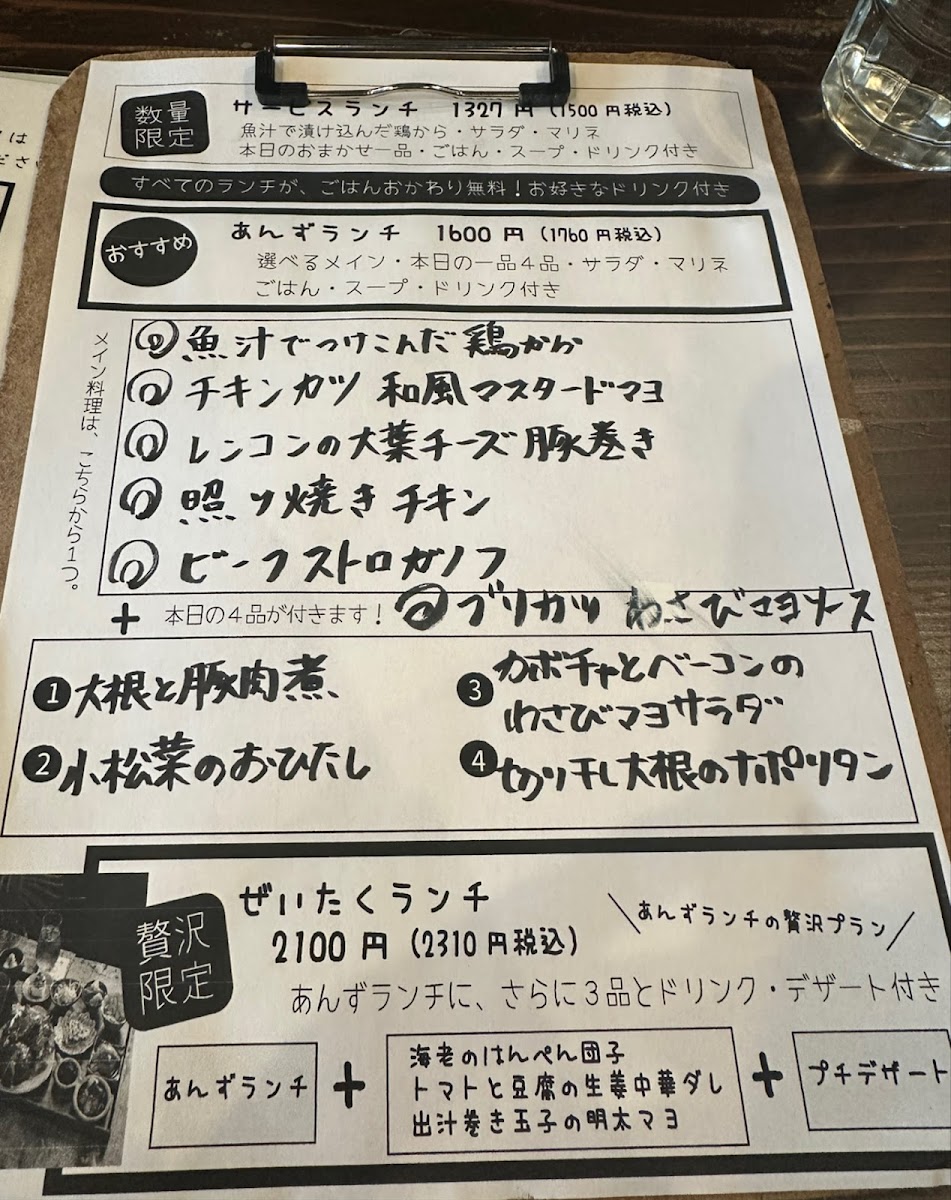 数量
限定
サービスランチ 1327円 (1500円税込)
魚汁で漬け込んだ鶏から・サラダ・マリネ
本日のおまかせ一品・ごはん・スープ・ドリンク付き
すべてのランチが、ごはんおかわり無料!お好きなドリンク付き
おすすめ
あんずランチ 1600円 (1760円税込)
選べるメイン・本日の一品4品・サラダ・マリネ
ごはん・スープ・ドリンク付き
メイン料理は、こちらから1つ。
魚汁でつけこんだ鶏から
チキンカツ 和風マスタードマヨ
レンコンの大葉チーズ豚巻き
照り焼きチキン
ビーフストロガノフ
ブリカツ わさびマヨソース
+ 本日の4品が付きます!
❶大根と豚肉煮
❷小松菜のおひたし
❸カボチャとベーコンの
わさびマヨサラダ
❹切り干し大根のナポリタン
贅沢
限定
ぜいたくランチ
2100円 (2310円税込)
\あんずランチの贅沢プラン/
あんずランチに、さらに3品とドリンク・デザート付き
あんずランチ
+
海老のはんぺん団子
トマトと豆腐の生姜中華ダレ
出汁巻き玉子の明太マヨ
+
プチデザート